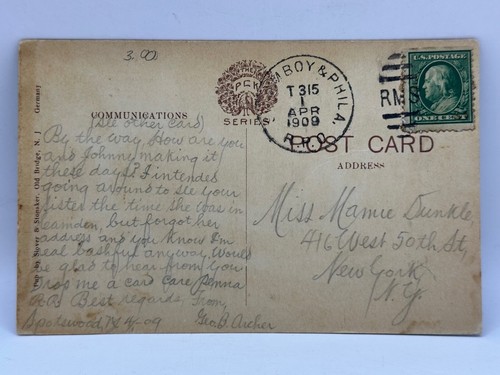 3.00
THE
P C K
SERIES
BOY & PHILA.
T 315
1
APR
1909
R.P.O.
RMS
U.S. POSTAGE
ONE CENT
COMMUNICATIONS
POST CARD
ADDRESS
Stover & Stonaker, Old Bridge, N. J.
Germany
(See other card)
By the way How are you
and Johnne making it
these days? I intended
going around to see your
sister the time she was in
Camden, but forgot her
address and you know I'm
real bashful anyway. Would
be glad to hear from you
Drop me a card care Penna
R.R. Best regards, From,
Spotswood, NJ 4/1-09 Geo. B. Archer
Miss Mamie Dunkle,
416 West 50th St,
New York,
N.Y.